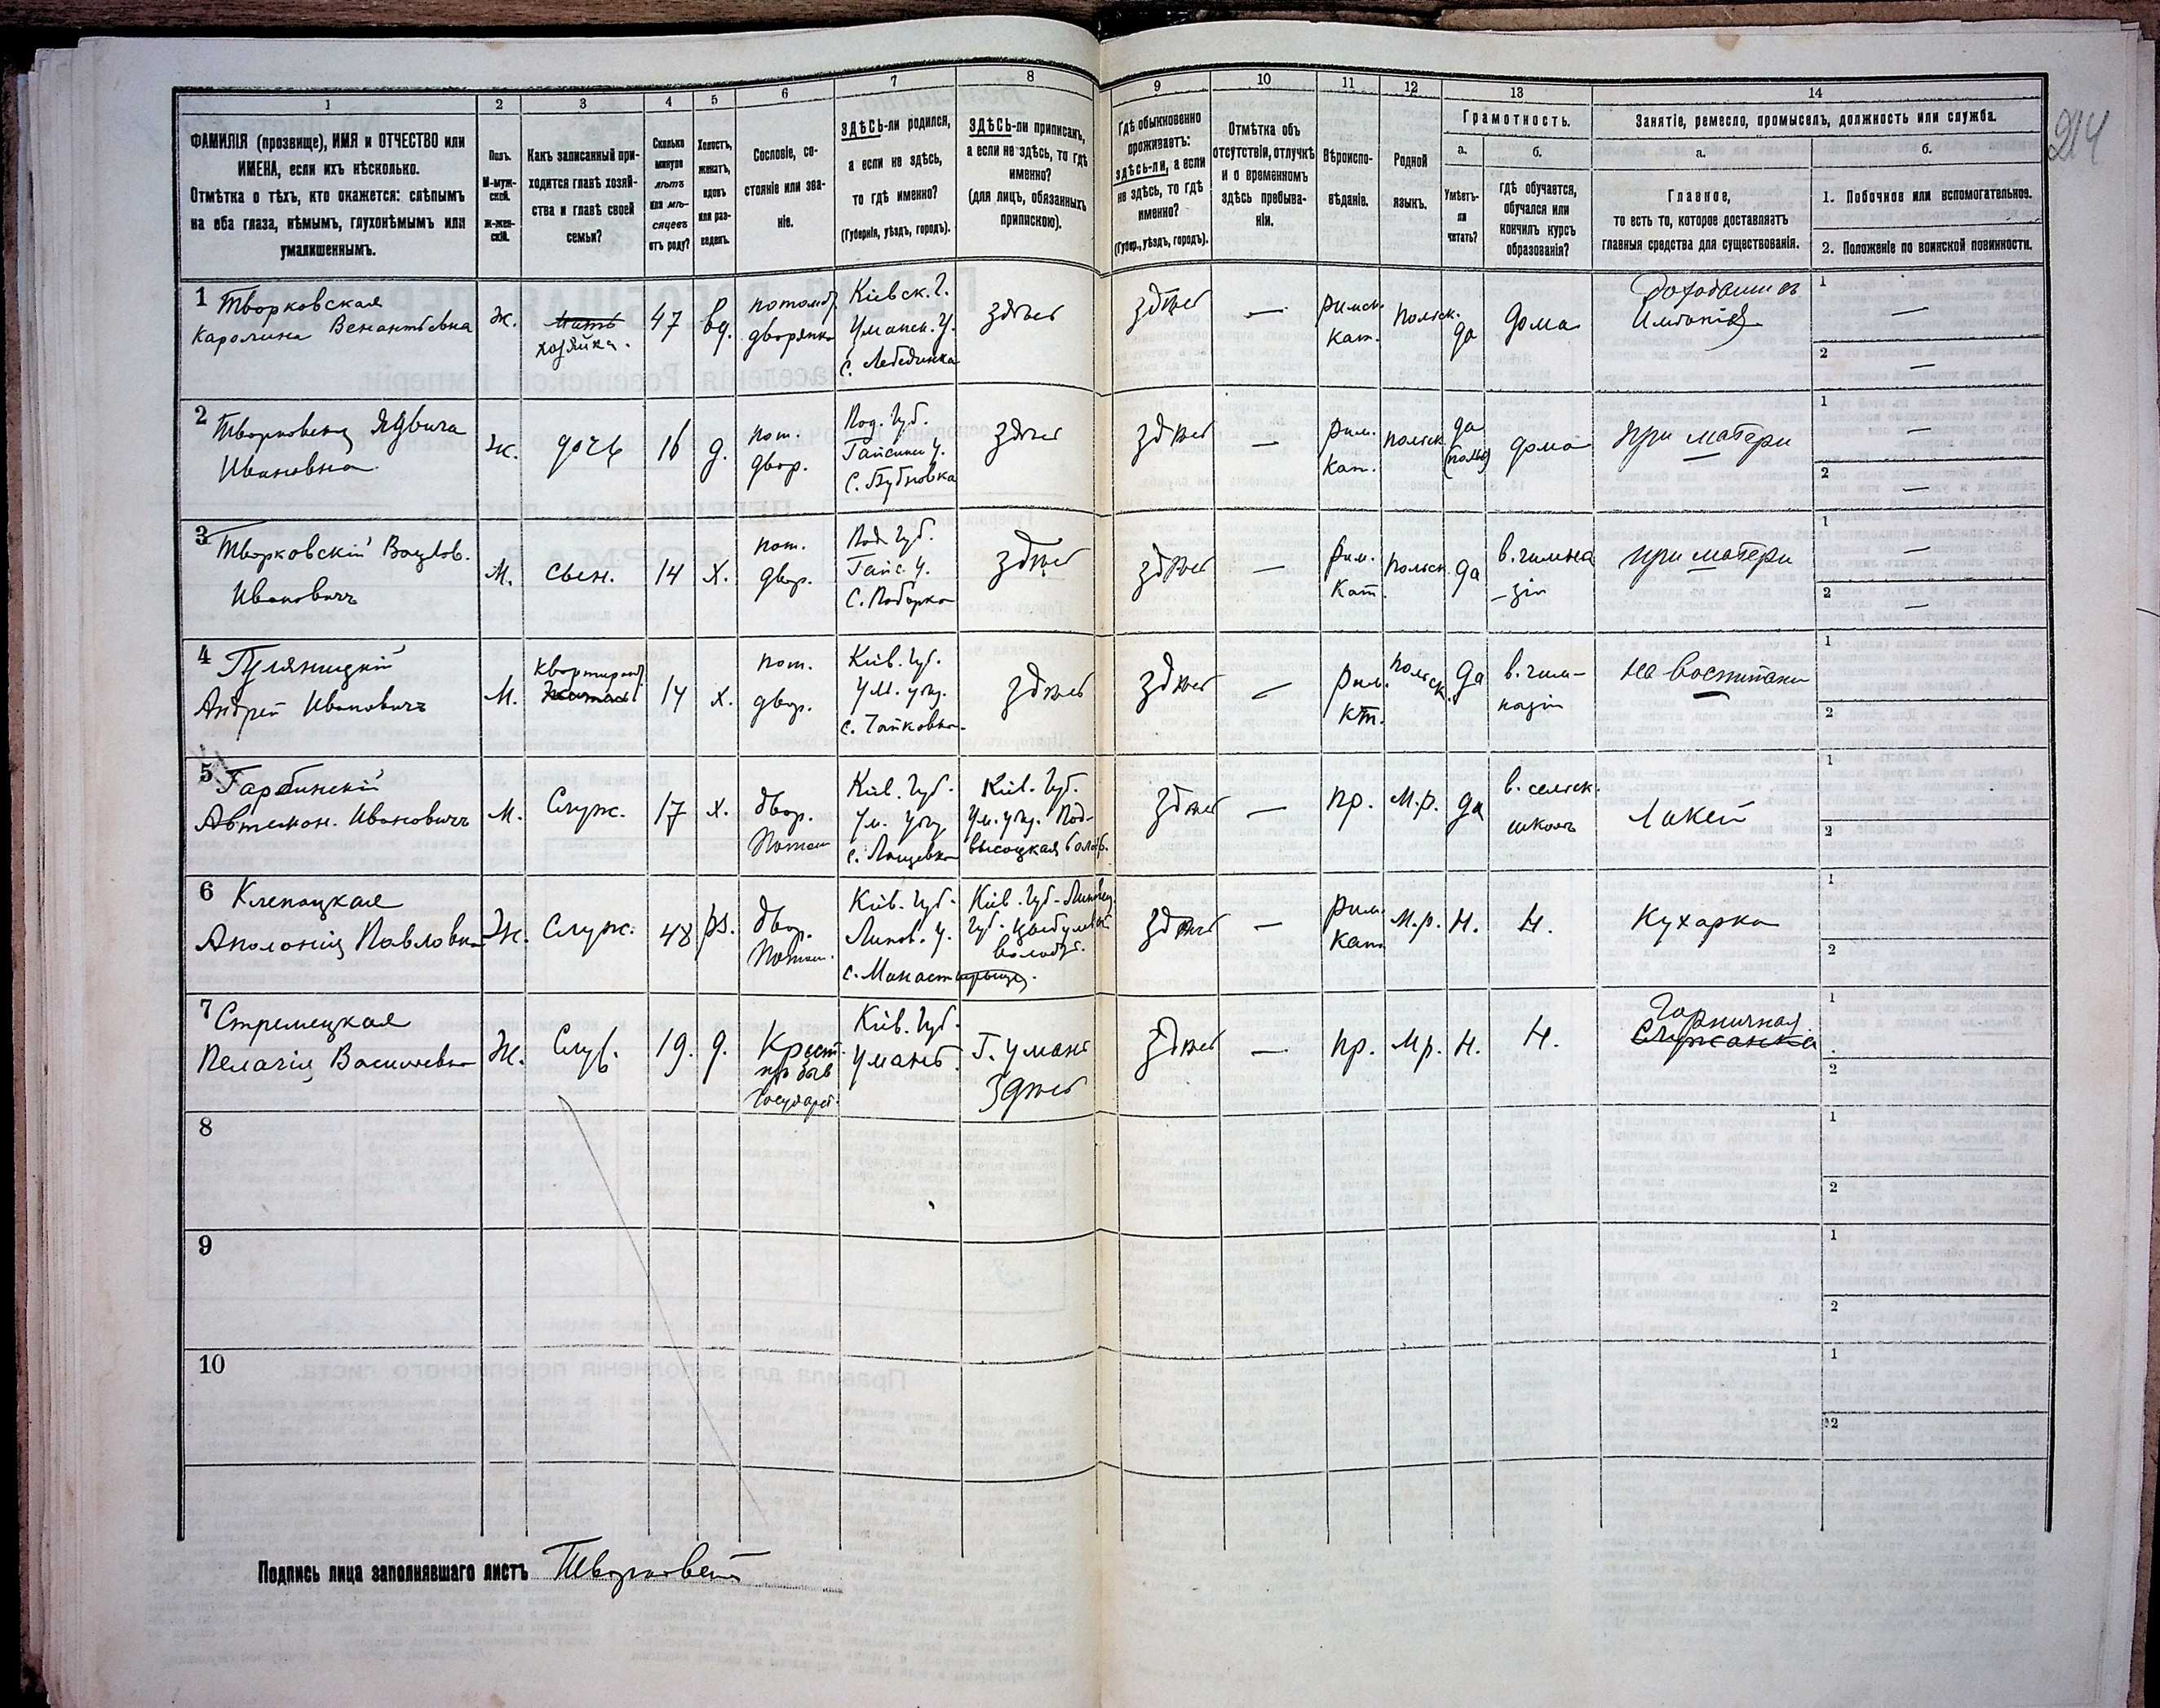 1
2
3
4
5
6
7
8
9
10
11
12
13
14
214
ФАМИЛІЯ (прозвище), ИМЯ и ОТЧЕСТВО или
ИМЕНА, если ихъ нѣсколько.
Отмѣтка о тѣхъ, кто окажется: слѣпымъ
на оба глаза, нѣмымъ, глухонѣмымъ или
умалишеннымъ.
Полъ.
М-муж-
ской.
Ж-жен-
скій.
Какъ записанный при-
ходится главѣ хозяй-
ства и главѣ своей
семьи?
Сколько
минуло
лѣтъ
или мѣ-
сяцевъ
отъ роду?
Холостъ,
женатъ,
вдовъ
или раз-
веденъ.
Сословіе, со-
стояніе или зва-
ніе.
ЗДѢСЬ-ли родился,
а если не здѣсь,
то гдѣ именно?
(Губернія, уѣздъ, городъ).
ЗДѢСЬ-ли приписанъ,
а если не здѣсь, то гдѣ
именно?
(для лицъ, обязанныхъ
припискою).
Гдѣ обыкновенно
проживаетъ:
здѣсь-ли, а если
не здѣсь, то гдѣ
именно?
(Губер., уѣздъ, городъ).
Отмѣтка объ
отсутствіи, отлучкѣ
и о временномъ
здѣсь пребыва-
ніи.
Вѣроиспо-
вѣданіе.
Родной
языкъ.
Грамотность.
а.
Умѣетъ-
ли
читать?
б.
гдѣ обучается,
обучался или
кончилъ курсъ
образованія?
Занятіе, ремесло, промыселъ, должность или служба.
а.
Главное,
то есть то, которое доставляетъ
главныя средства для существованія.
б.
1. Побочное или вспомогательное.
2. Положеніе по воинской повинности.
1 Творковская
Каролина
Ж.
хозяйка.
47
вд.
потомс.
дворянка
Кіевск. Г.
Уманск. У.
с. Лебединка
здѣсь
здѣсь
—
Римск.
Кат.
Польск.
да
дома
1 —
2 —
2 Творковская Ядвига
Ивановна
Ж.
дочь
16
д.
пот.
двор.
Под. Губ.
Гайсинск У.
с. Бубновка
здѣсь
здѣсь
—
Рим.
Кат.
польск
да
(поль)
дома
при матери
1 —
2 —
3 Творковскій Вацлов.
Ивановичъ
М.
сын.
14
х.
пот.
двор.
Под. Губ.
Гайс. У.
с.
здѣсь
здѣсь
—
Рим.
Кат.
польск.
да
в. гимна
-зіи
при матери
1 —
2 —
4 Гуляницкій
Андрей Ивановичъ
М.
Квартирант
14
х.
пот.
двор.
Кіев. Губ.
Ум. уѣзд.
здѣсь
здѣсь
—
Рим.
Кт.
польск.
да
в. гим-
назіи
на воспитани
1
2
5 Гарбинскій
Автемон. Ивановичъ
М.
Служ.
17
х.
двор.
Потом
Кіев. Губ.
Ум. Уѣзд
Кіев. Губ.
Ум. уѣзд. Под-
высоцкая волос.
здѣсь
—
пр.
М.р.
да
в. сельск.
школѣ
Лакей
1
2
6 Клепацкая
Аполонія Павловна
Ж.
Служ.
48
рз.
двор.
Потом.
Кіев. Губ.
Липов. У.
с. Монастырище
Кіев. Губ. Липовец
волость.
здѣсь
—
Рим.
Кат
М.р.
Н.
Н.
Кухарка
1
2
7 Стремецкая
Пелагія Васильевна
Ж.
Служ.
19.
д.
Крест.
из быв
Государст.
Кіев. Губ.
Умань
Г. Умань
Здѣсь
здѣсь
—
пр.
Мр.
Н.
Н.
Горничная.
Служанка
1
2
8
1
2
9
1
2
10
1
2
Подпись лица заполнявшаго листъ